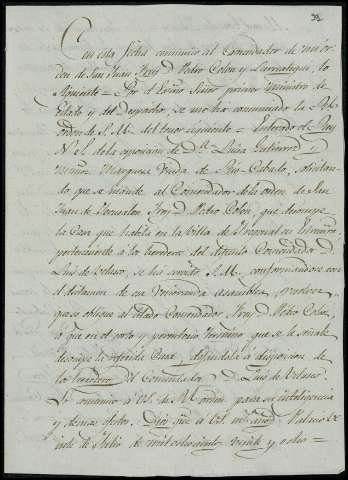 Con esta fecha comunico al Comendador de
den de San Juan Frey D. Pedro Colon y Larreategui, lo
siguiente = Por el Exmo Señor primer Ministro de
Estado y del Despacho, se me ha comunicado la Rl
orden de S. M. del tenor siguiente = Enterado el Rey
N. S. de la exposicion de Dª Luisa Gutierrez y
Marquesa Viuda de solicitan-
do que se mande al Comendador de la orden de San
Juan de Jerusalen Frey D. Pedro Colon, que desocupe
la Casa que habita en la Villa de
perteneciente á los herederos del difunto Comendador D.
Luis de Velasco, se ha servido S. M., conformandose con
el dictamen de su Veneranda Asamblea,
que se obligue al citado Comendador Frey D. Pedro Colon,
á que en el corto y perentorio termino que se le señale
desocupe la referida Casa, dejandola á disposicion de
los herederos del Comendador D. Luis de Velasco.
Lo comunico á de Rl orden para su inteligencia
y demas efectos. Dios gue á m. años. Palacio
de Julio de mil ochocientos veinte y ocho =